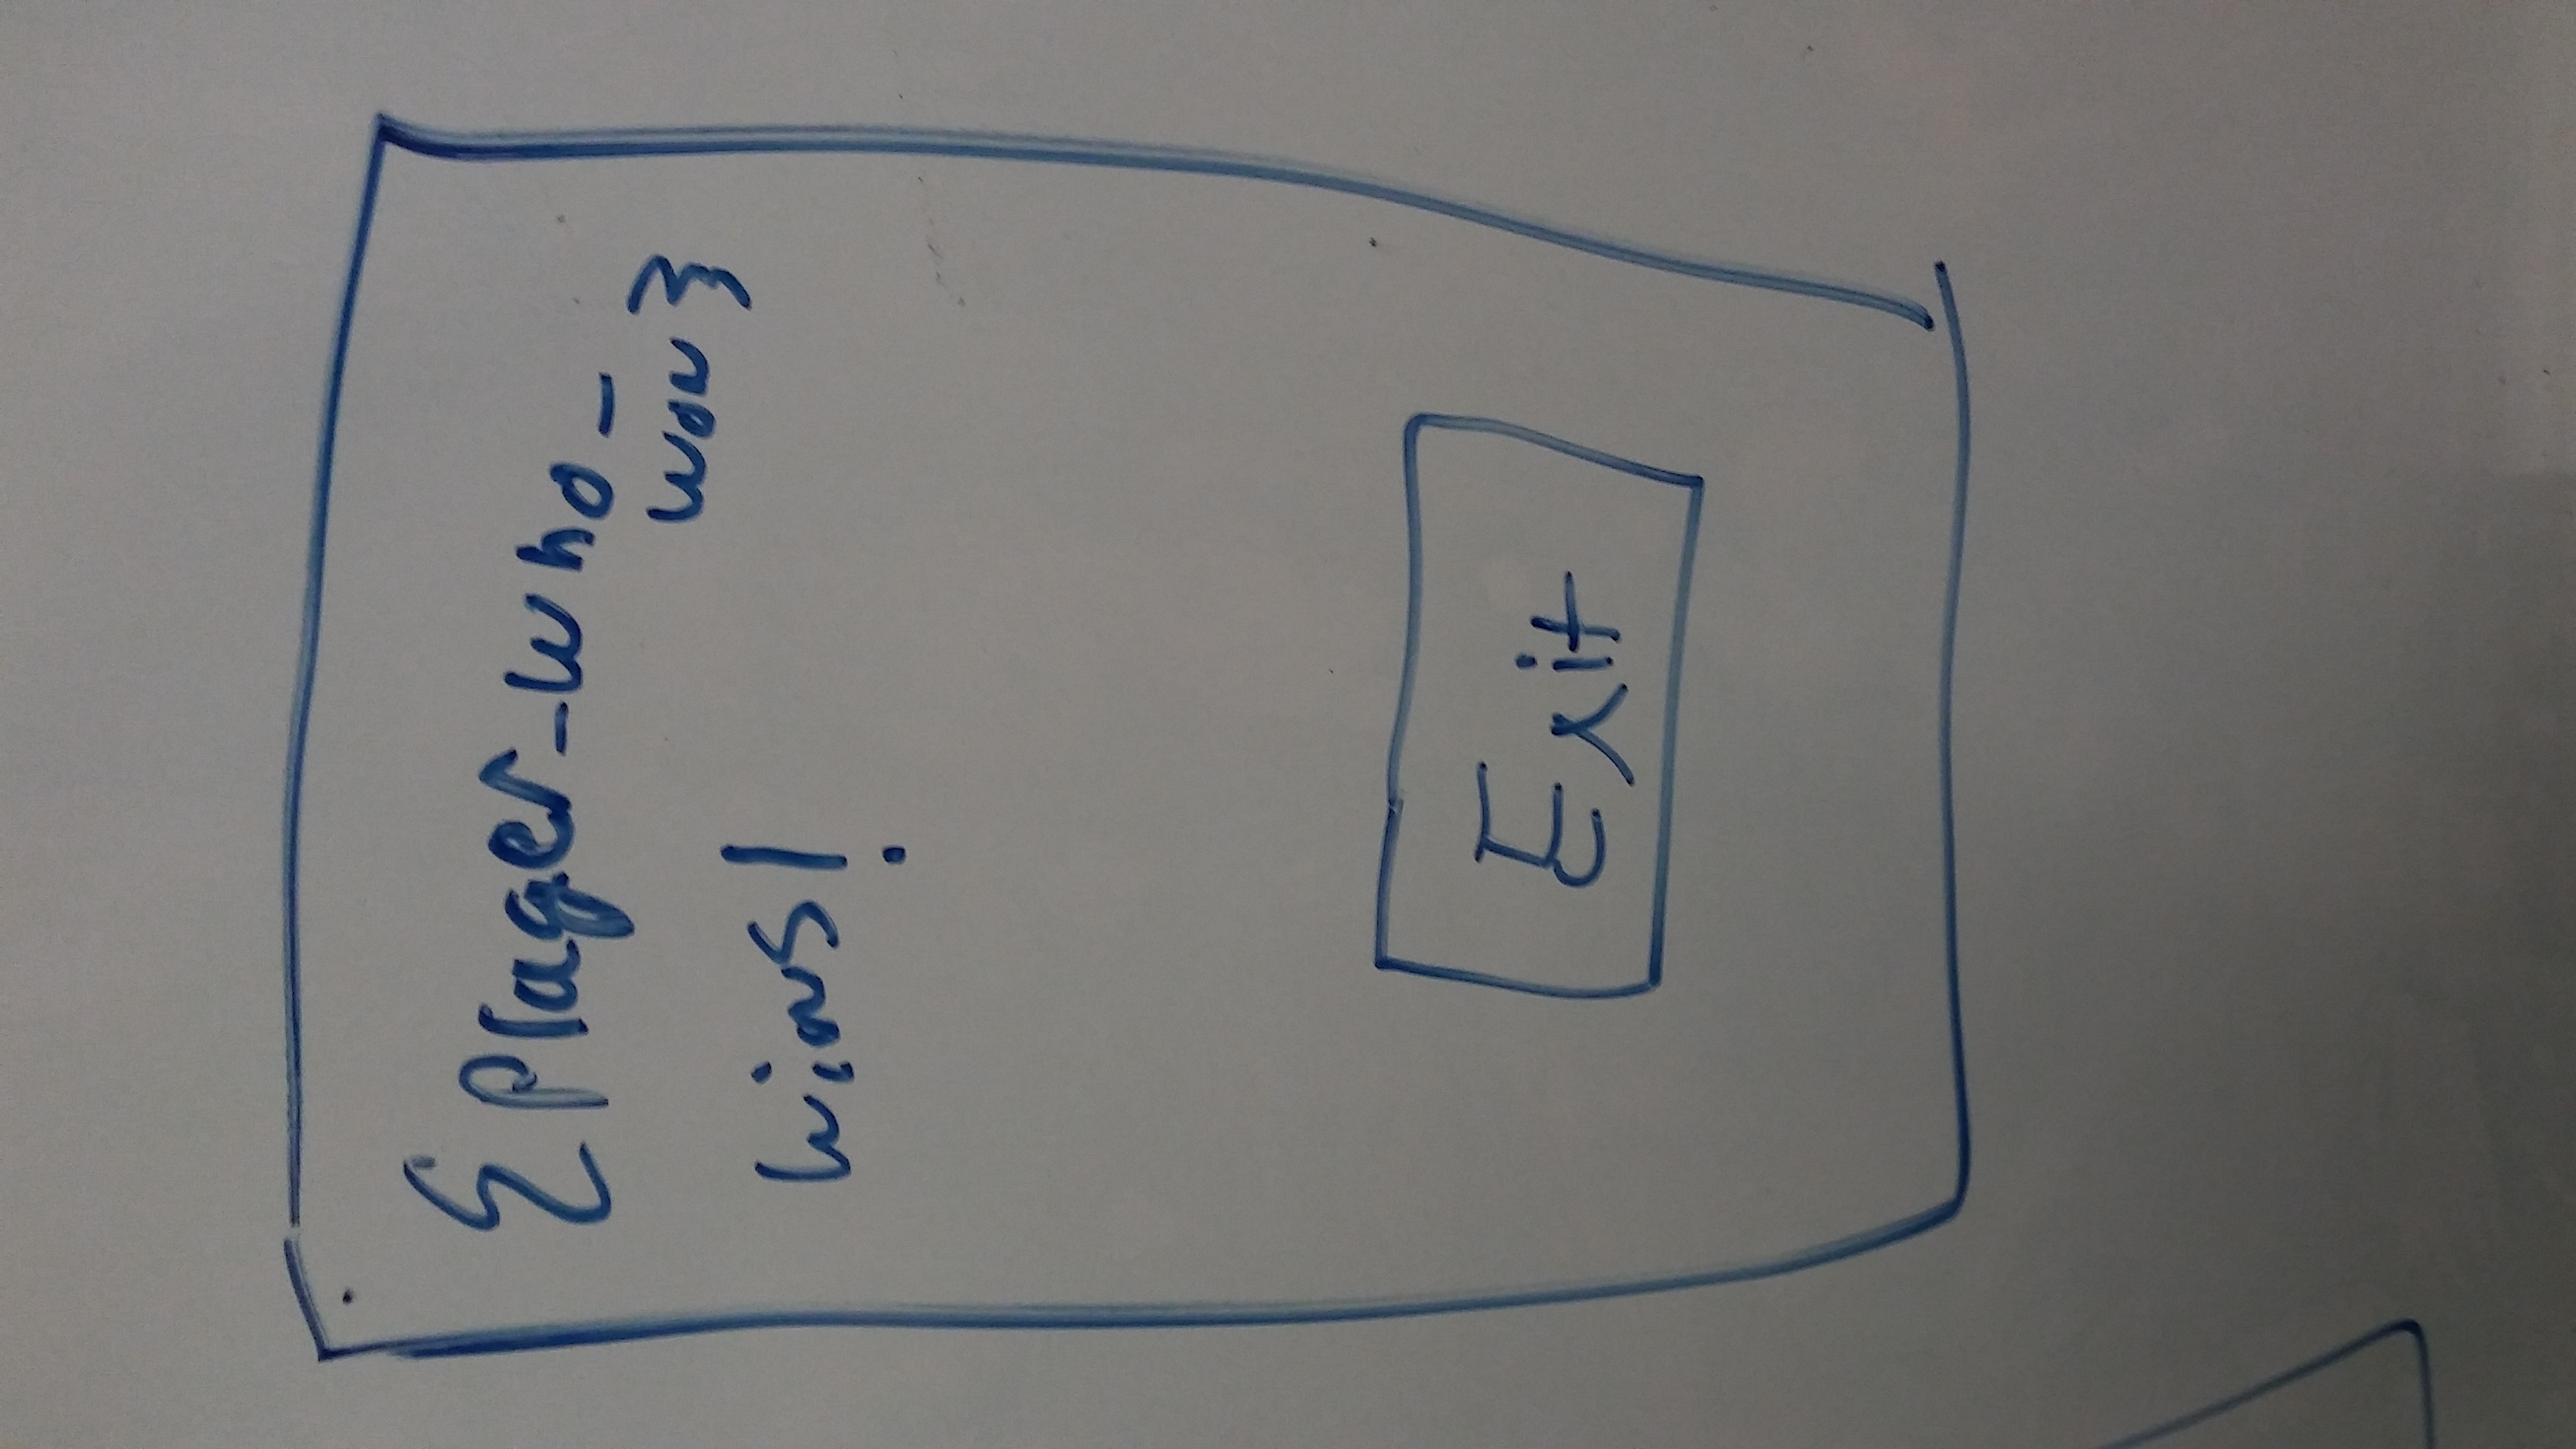 {Player_who_
won}
wins!
Exit